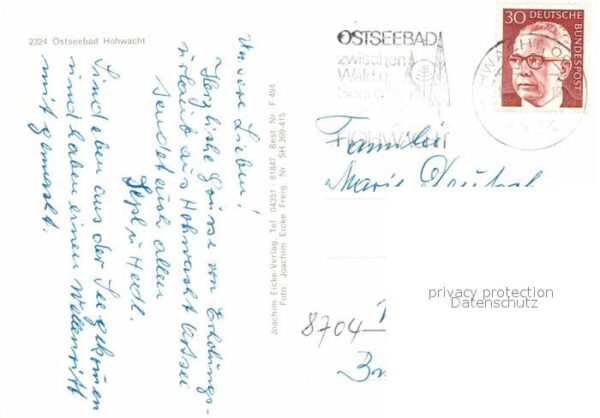 2324 Ostseebad Hohwacht
Unsere Lieben!
Herzliche Grüsse vom Erholungs-
urlaub aus Hohwacht Ostsee
sendet euch allen
Sepl u Hedl.
Sind eben aus der See gekommen
und haben einen Wellenritt
mit gemacht.
Joachim Eicke-Verlag, Tel. 04351 - 81847, Best Nr F 494
Foto: Joachim Eicke Freig. Nr. SH 369-415
OSTSEEBAD
zwischen
Wald u.
HOHWACHT
30 DEUTSCHE
BUNDESPOST
Familie
Marie
8704
privacy protection
Datenschutz